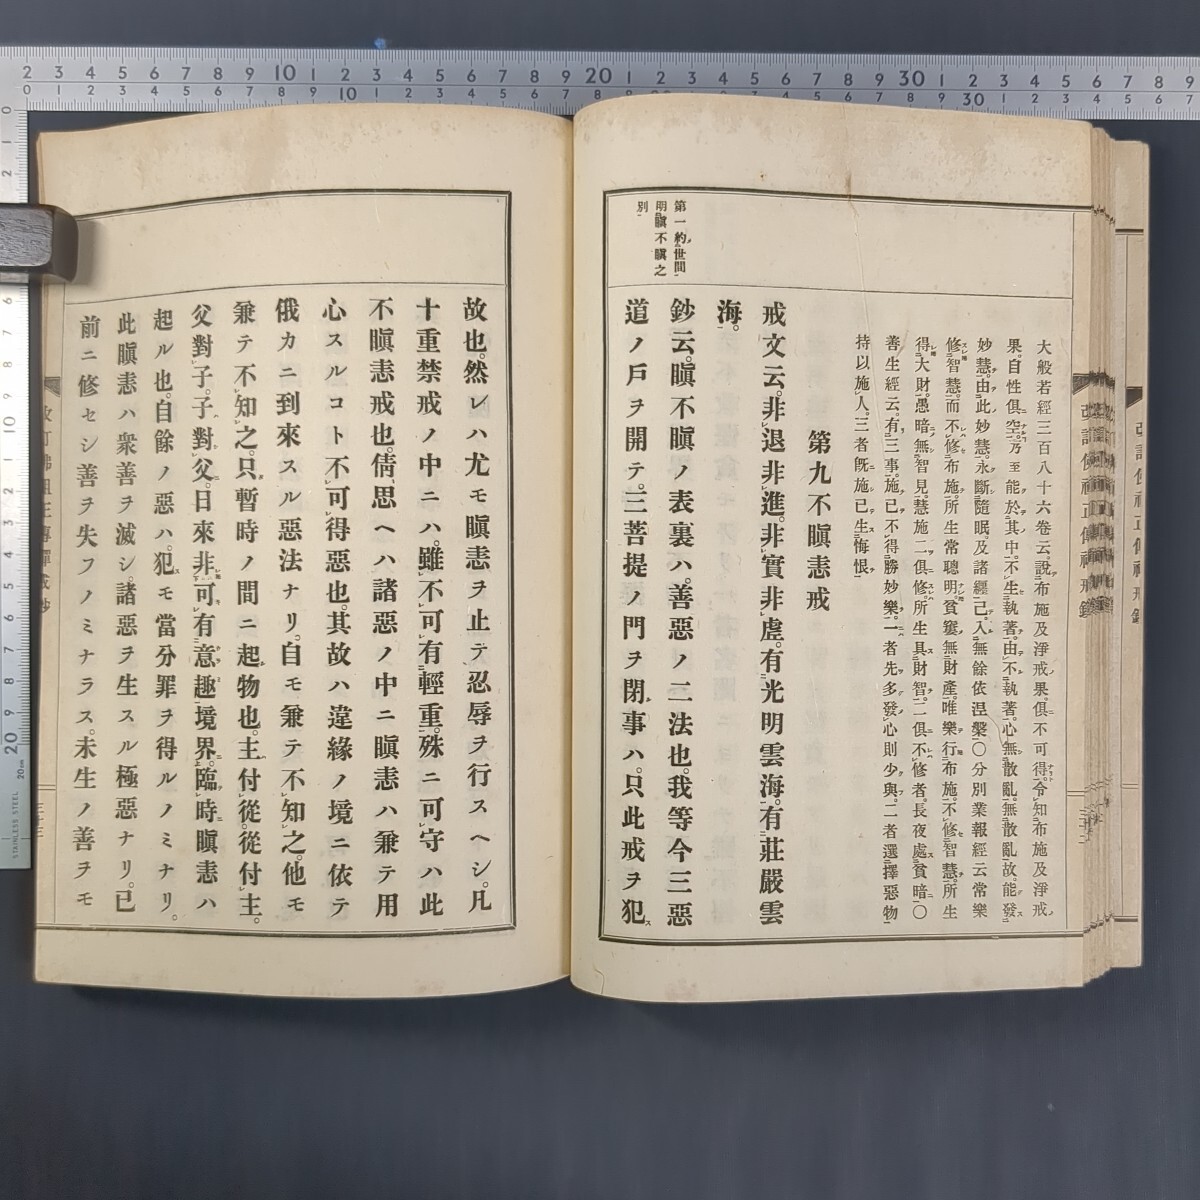 大般若經三百八十六卷云。說布施及淨戒果。俱不可得。令知布施及淨戒
果。自性俱空。乃至能於其中。不生執著。由不執著。心無散亂。無散亂故。能發
妙慧。由此妙慧。永斷隨眠。及諸纏已。入無餘依涅槃〇分別業報經云常樂
修智慧。而不修布施。所生常聰明。貧窶無財產。唯樂行布施。不修智慧。所生
得大財。愚暗無智見。慧施二俱修。所生具財智。二俱不修者。長夜處貧暗〇
善生經云。有三事。施已不得勝妙樂。一者先多發心則少與。二者選擇惡物
持以施人。三者既施已生悔恨
第九不瞋恚戒
戒文云。非退非進。非實非虛。有光明雲海。有莊嚴雲
海。
第一約世間
明瞋不瞋之
別
鈔云。瞋不瞋ノ表裏ハ。善惡ノ二法也。我等今三惡
道ノ戶ヲ開テ。三菩提ノ門ヲ閉事ハ。只此戒ヲ犯
故也。然レハ尤モ瞋恚ヲ止テ忍辱ヲ行スヘシ。凡
十重禁戒ノ中ニハ。雖不可有輕重。殊ニ可守ハ此
不瞋恚戒也。倩思ヘハ諸惡ノ中ニ瞋恚ハ兼テ用
心スルコト不可得惡也。其故ハ違緣ノ境ニ依テ
俄カニ到來スル惡法ナリ。自モ兼テ不知之。他モ
兼テ不知之。只暫時ノ間ニ起物也。主付從。從付主。
父對子。子對父。日來非可有意趣境界。臨時瞋恚ハ
起ル也。自餘ノ惡ハ。犯モ當分罪ヲ得ルノミナリ。
此瞋恚ハ衆善ヲ滅シ。諸惡ヲ生スル極惡ナリ。已
前ニ修セシ善ヲ失フノミナラス。未生ノ善ヲモ
STAINLESS STEEL